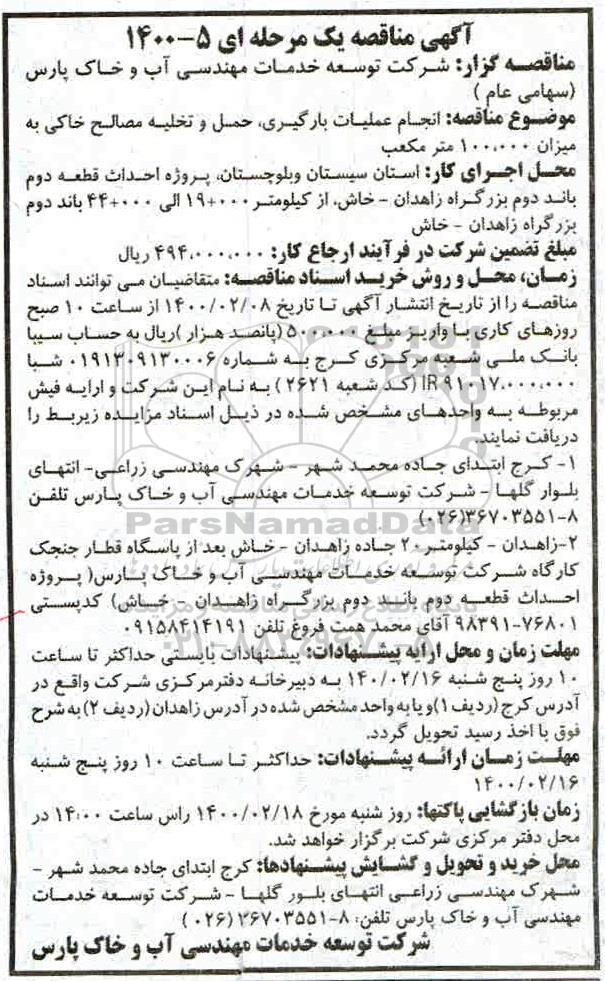 آگهی مناقصه یک مرحله ای ۵-۱۴۰۰
مناقصه گزار: شرکت توسعه خدمات مهندسی آب و خاک پارس
(سهامی عام )
موضوع مناقصه: انجام عملیات بارگیری، حمل و تخلیه مصالح خاکی به
میزان ۱۰۰،۰۰۰ متر مکعب
محل اجرای کار: استان سیستان وبلوچستان، پروژه احداث قطعه دوم
باند دوم بزرگراه زاهدان - خاش، از کیلومتر ۰۰۰+۱۹ الی ۰۰۰+۴۴ باند دوم
بزرگراه زاهدان - خاش
مبلغ تضمین شرکت در فرآیند ارجاع کار: ۴۹۴،۰۰۰،۰۰۰ ریال
زمان، محل و روش خرید اسناد مناقصه: متقاضیان می توانند اسناد
مناقصه را از تاریخ انتشار آگهی تا تاریخ ۱۴۰۰/۰۲/۰۸ از ساعت ۱۰ صبح
روزهای کاری با واریز مبلغ ۵۰۰،۰۰۰ (پانصد هزار )ریال به حساب سیبا
بانک ملی شعبه مرکزی کرج به شماره ۰۱۹۱۳۰۹۱۳۰۰۰۶ شبا
IR۹۱۰۱۷۰۰۰۰۰۰۰ (کد شعبه ۲۶۲۱ ) به نام این شرکت و ارایه فیش
مربوطه به واحدهای مشخص شده در ذیل اسناد مزایده زیربط را
دریافت نمایند.
۱- کرج ابتدای جاده محمد شهر - شهرک مهندسی زراعی- انتهای
بلوار گلها - شرکت توسعه خدمات مهندسی آب و خاک پارس تلفن
۸-۳۶۷۰۳۵۵۱(۰۲۶)
ParsNamadData
۲-زاهدان - کیلومتر ۲۰ جاده زاهدان - خاش بعد از پاسگاه قطار جنجک
کارگاه شرکت توسعه خدمات مهندسی آب و خاک پارس( پروژه
احداث قطعه دوم باند دوم بزرگراه زاهدان - خاش) کدپستی
۷۶۸۰۱-۹۸۳۹۱ آقای محمد همت فروغ تلفن ۰۹۱۵۸۴۱۴۱۹۱
مهلت زمان و محل ارایه پیشنهادات: پیشنهادات بایستی حداکثر تا ساعت
۱۰ روز پنج شنبه ۱۴۰۰/۰۲/۱۶ به دبیرخانه دفترمرکزی شرکت واقع در
آدرس کرج(ردیف ۱)و یا به واحد مشخص شده در آدرس زاهدان(ردیف ۲) به شرح
فوق با اخذ رسید تحویل گردد.
مهلت زمان ارائه پیشنهادات: حداکثر تا ساعت ۱۰ روز پنج شنبه
۱۴۰۰/۰۲/۱۶
زمان بازگشایی پاکتها: روز شنبه مورخ ۱۴۰۰/۰۲/۱۸ راس ساعت ۱۴:۰۰ در
محل دفتر مرکزی شرکت برگزار خواهد شد.
محل خرید و تحویل و گشایش پیشنهادها: کرج ابتدای جاده محمد شهر -
شهرک مهندسی زراعی انتهای بلور گلها - شرکت توسعه خدمات
مهندسی آب و خاک پارس تلفن: ۸-۳۶۷۰۳۵۵۱ (۰۲۶)
شرکت توسعه خدمات مهندسی آب و خاک پارس